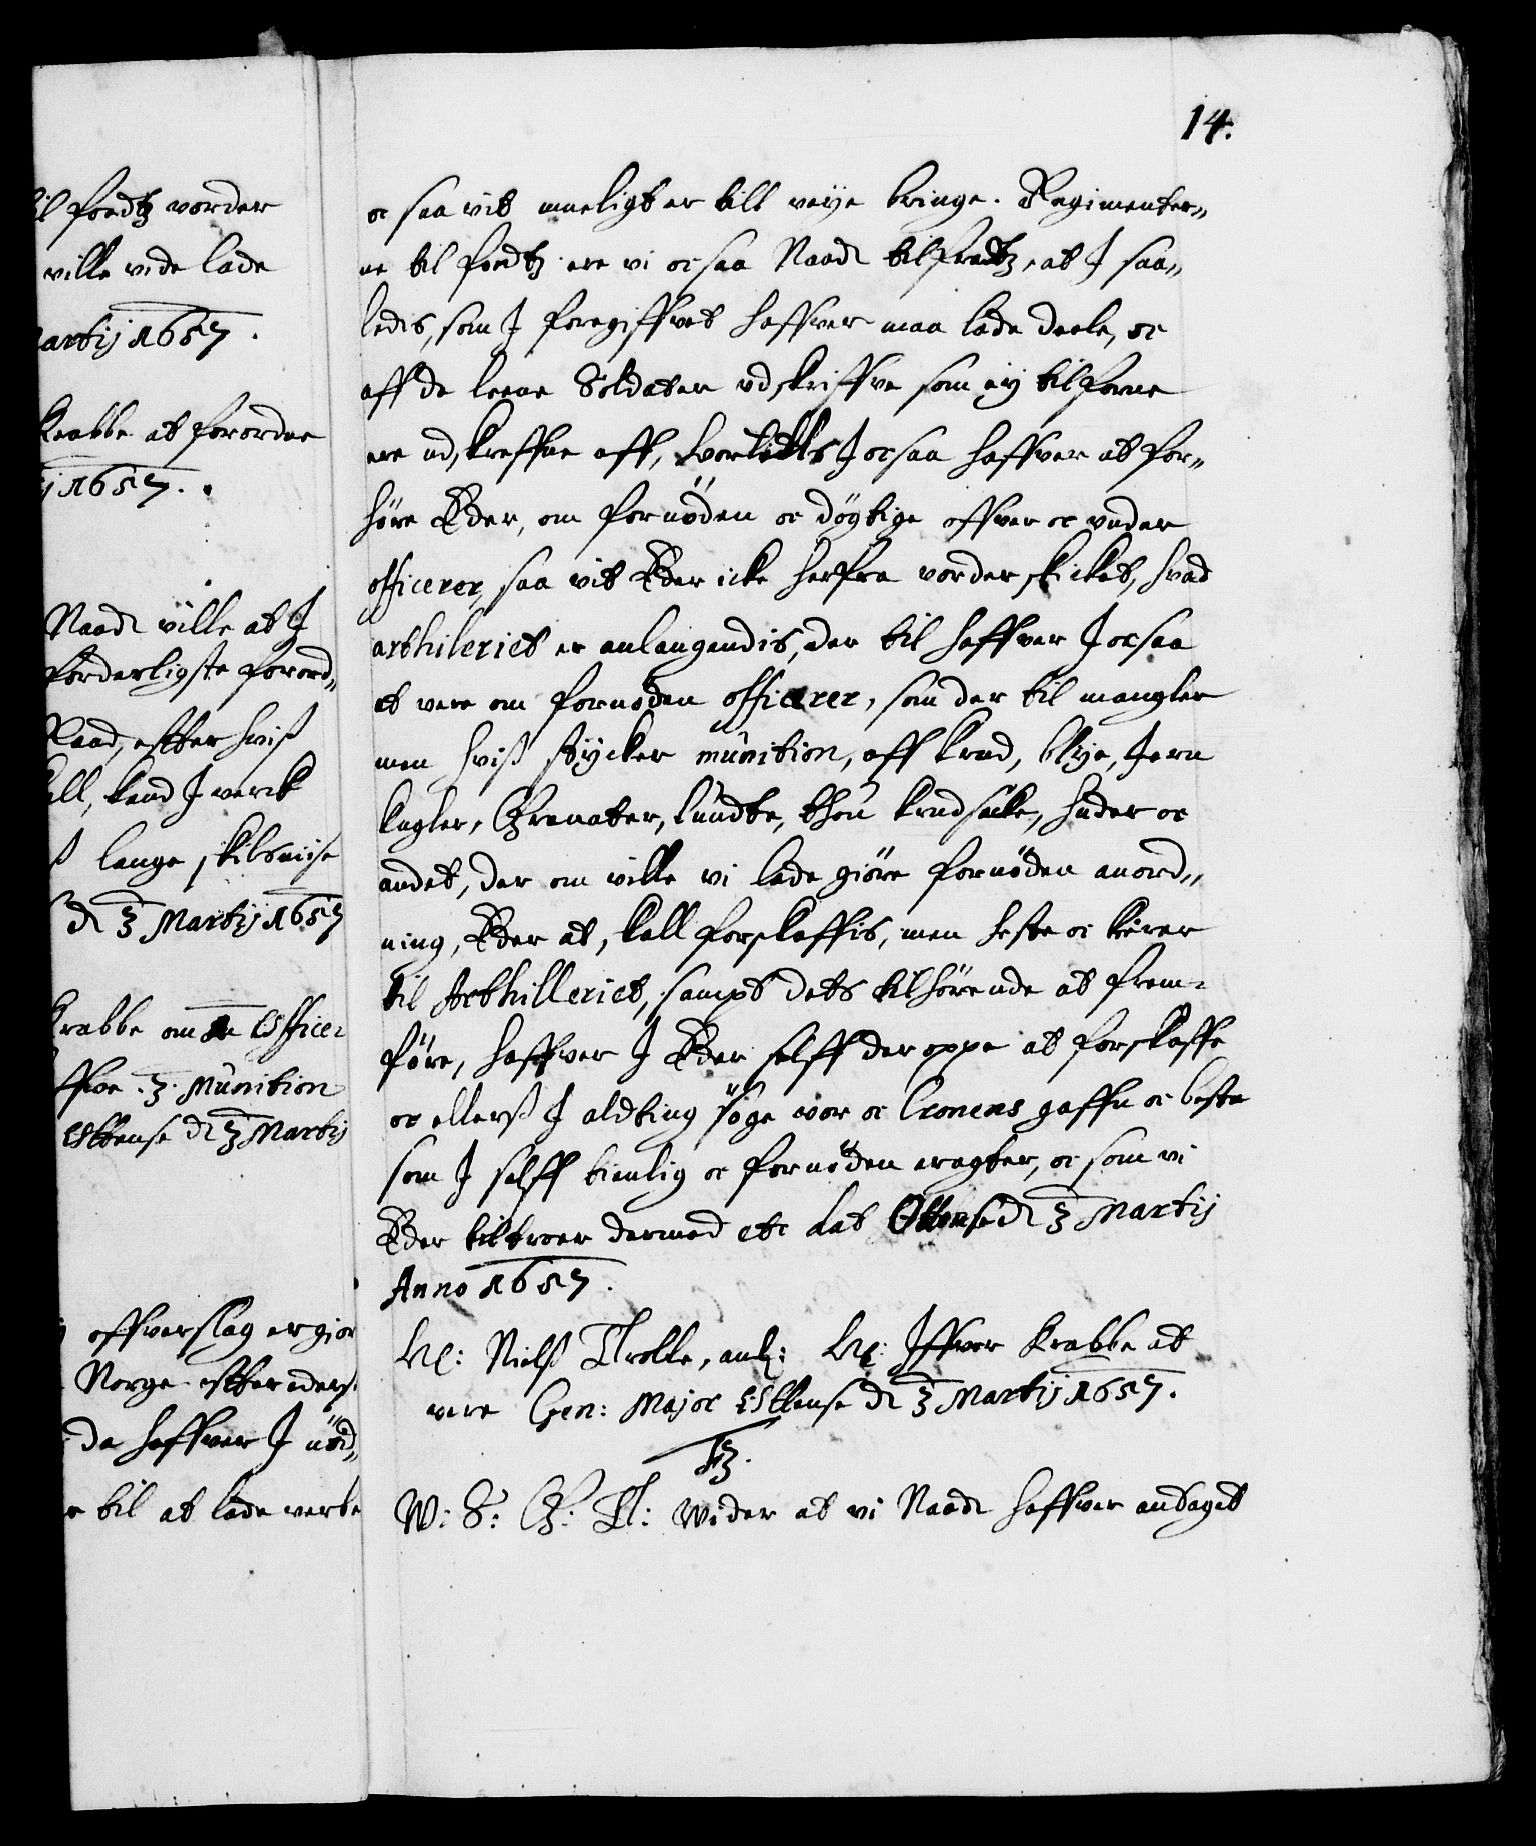 14.
il foedtz vorder
ville vide lade
artij 1657.
Krabbe at forordne
j 1657.
Naad: ville at J
forderligste forord„
Raad, efter hviß
all, kand J verck
ß lange skilsmise
d: 3 Martij 1657
Krabbe om Officer
3. Munition
Ottense d: 3 Martij
offverslag er gior
Norge efter eders
da haffver J nöd„
til at lade verbe
oc saa vit mueligt er till veye bringe. Regimenter„
ne til foedtz ere vi oc saa Naad: tilfredtz, at J saa„
ledis, som J foregiffvet haffver maa lade deele, oc
aff de leene Soldater udskriffve som ey tilforne
ere udskreffne aff, J ocsaa haffver at for„
höre Eder, om fornöden oc dögtige offver oc under
officerer, saa vit Eder icke herfra vorder skicket, hvad
arthileriet er anlangendis, der til haffver J ocsaa
at vere om fornöden officerer, som der til mangler
men hviß stycker munition, aff krud, blye, Jern
kugler, Granater, lundte, thou krudsäcke, huder oc
andet, der om ville vi lade giöre fornöden anord„
ning, Eder at skall forskaffis, men heste oc kierer
til Arthilleriet, sampt dets tilhörende at frem-
före, haffver J Eder selff der oppe at forskaffe
oc ellerß J aldting söge vor oc Cronens gaffn oc beste
som J selff tienlig oc fornöden eragter, oc som vi
Eder tiltroer dermed etc dat Ottense d: 3 Martij
Anno 1657.
Nielß Trolle, anl: Iffver Krabbe at
vere Gen: Major Ottense d: 3 Martij 1657.
F3.
W: S: G: T: Wider at vi Naad: haffver andtaget